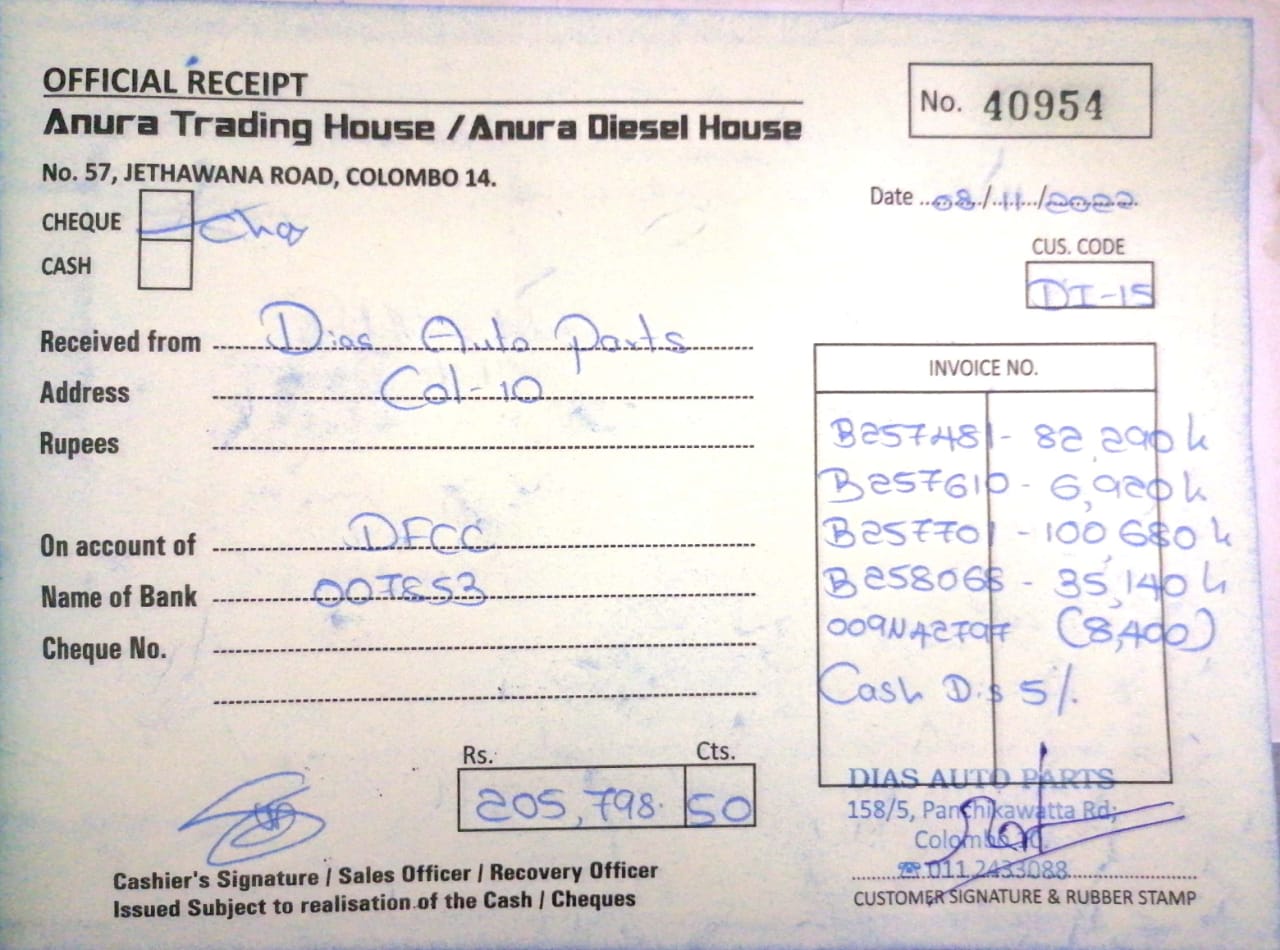 OFFICIAL RECEIPT
No. 40954
Anura Trading House / Anura Diesel House
No. 57, JETHAWANA ROAD, COLOMBO 14.
Date 08/11/2022
CHEQUE
CASH
CUS. CODE
DI-15
Received from Dias Auto Parts
Address Col-10
Rupees
On account of DFCC
Name of Bank 007853
Cheque No.
INVOICE NO.
B257481 - 82,290
B257610 - 6,920
B257701 - 100,680
B258068 - 35,140
(8,400)
Cash Dis 5%
Rs. Cts.
205,798. 50
DIAS AUTO PARTS
158/5, Panchikawatta Rd;
Colombo 10.
☎ 011 2433088
Cashier's Signature / Sales Officer / Recovery Officer
Issued Subject to realisation of the Cash / Cheques
CUSTOMER SIGNATURE & RUBBER STAMP